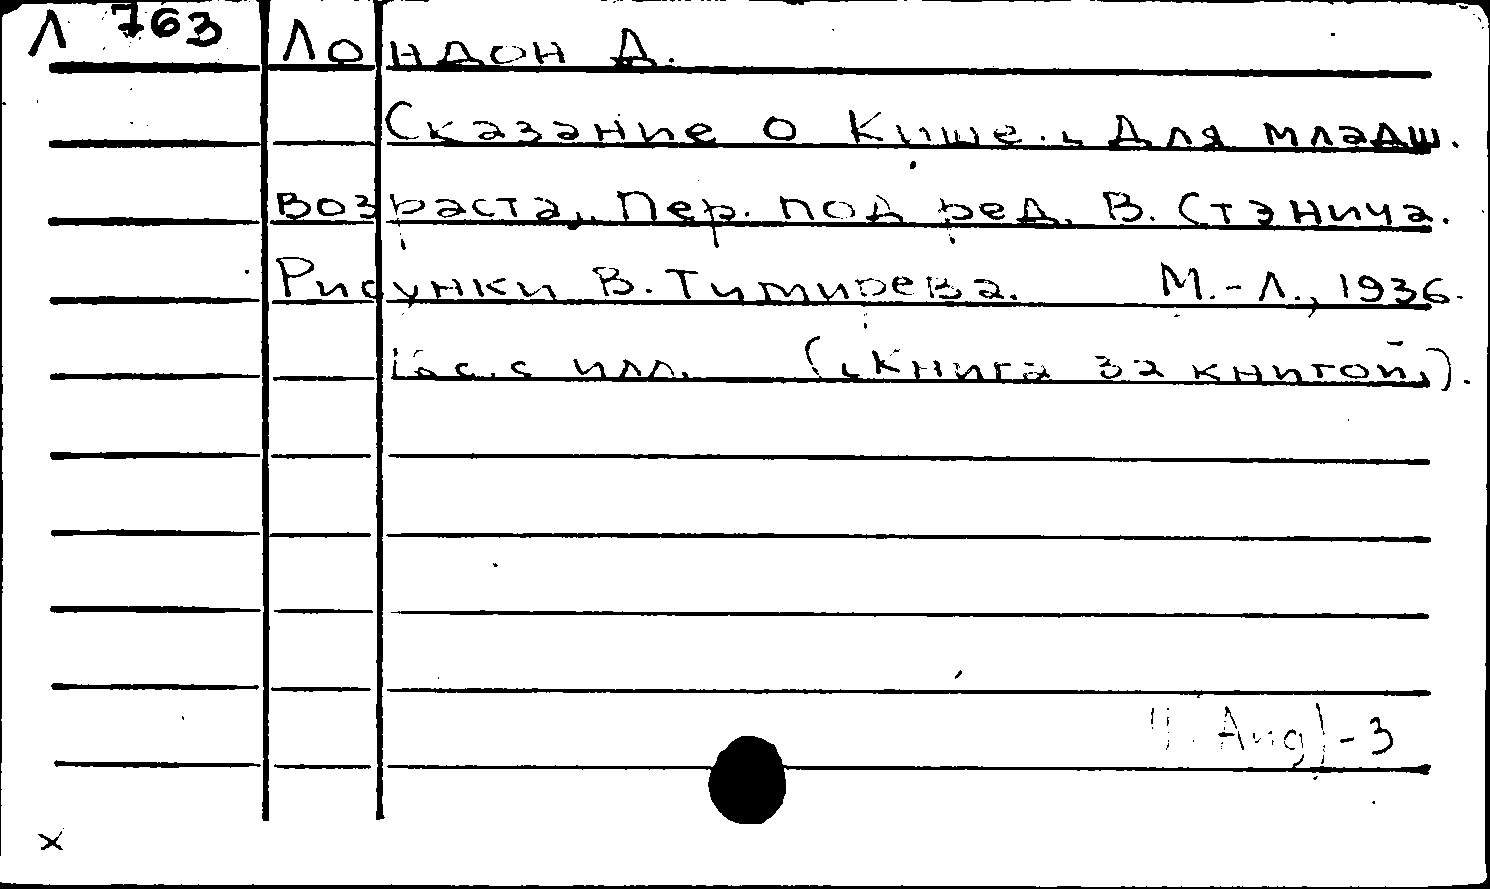 Л 763 Лондон Д.
Сказание о Кише. „Для младш.
возраста„. Пер. под ред. В. Станича.
Рисунки В. Тимирева. М.-Л., 1936.
16 с. с илл. („Книга за книгой„).
Angl-3
х